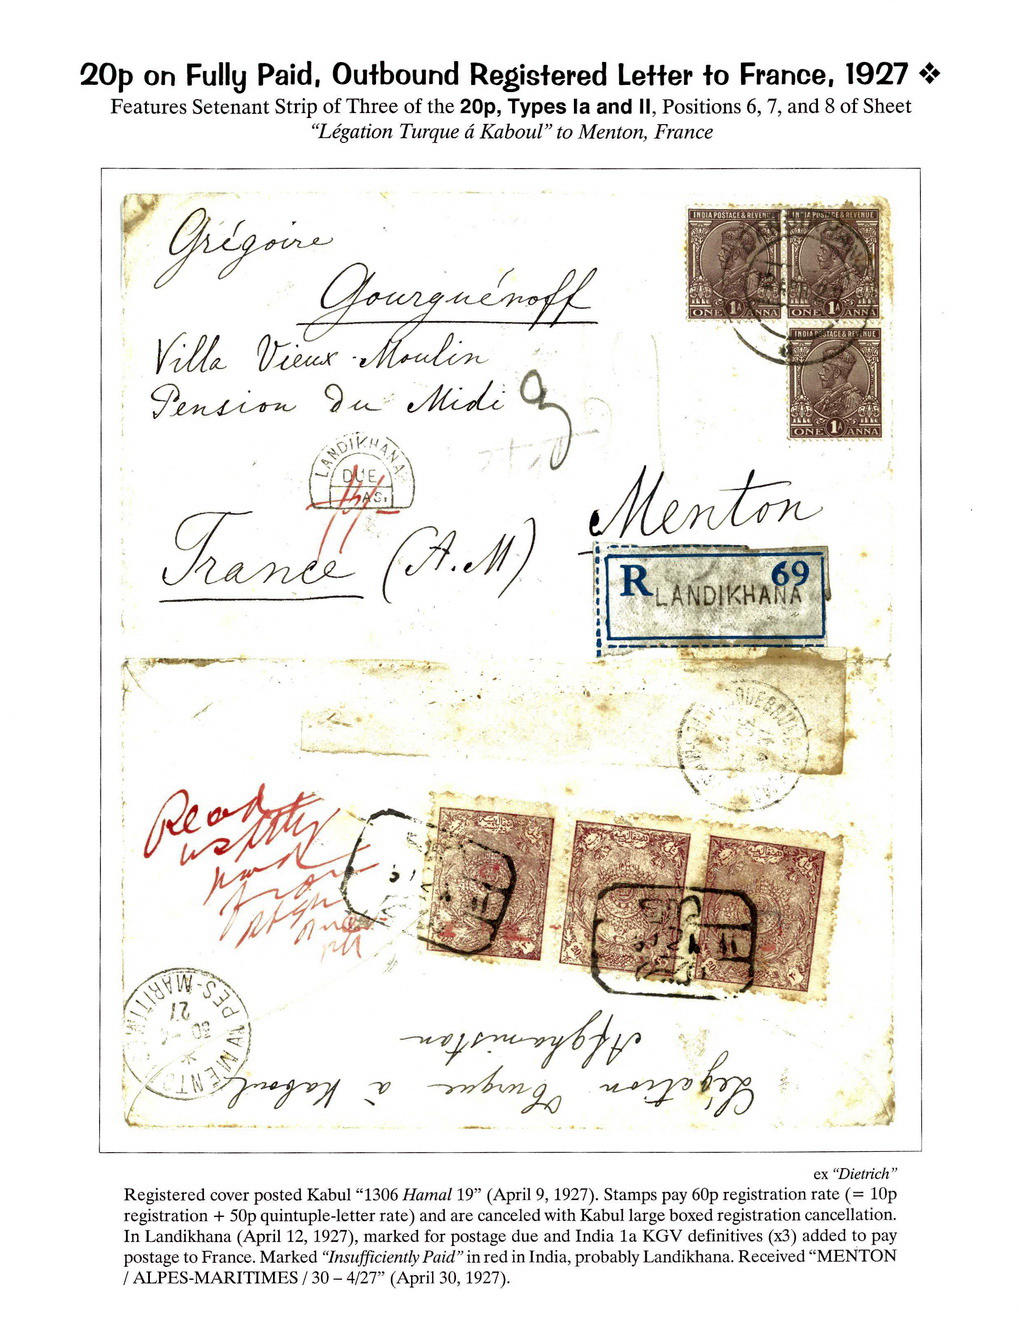 20p on Fully Paid, Outbound Registered Letter to France, 1927 ❖
Features Setenant Strip of Three of the 20p, Types Ia and II, Positions 6, 7, and 8 of Sheet
“Légation Turque á Kaboul” to Menton, France
Grégoire
Gourguénoff
Villa Vieux-Moulin
Pension du Midi
3
INDIA POSTAGE & REVENUE
INDIA POSTAGE & REVENUE
ONE 1A ANNA
ONE 1A ANNA
INDIA POSTAGE & REVENUE
ONE 1A ANNA
LANDIKHANA
DUE
AS.
Menton
France (A.M)
R 69
LANDIKHANA
MENTON
ALPES-MARITIMES
30-4
27
Légation Turque à Kaboul
Afghanistan
ex “Dietrich”
Registered cover posted Kabul “1306 Hamal 19” (April 9, 1927). Stamps pay 60p registration rate (= 10p
registration + 50p quintuple-letter rate) and are canceled with Kabul large boxed registration cancellation.
In Landikhana (April 12, 1927), marked for postage due and India 1a KGV definitives (x3) added to pay
postage to France. Marked “Insufficiently Paid” in red in India, probably Landikhana. Received “MENTON
/ ALPES-MARITIMES / 30 – 4/27” (April 30, 1927).